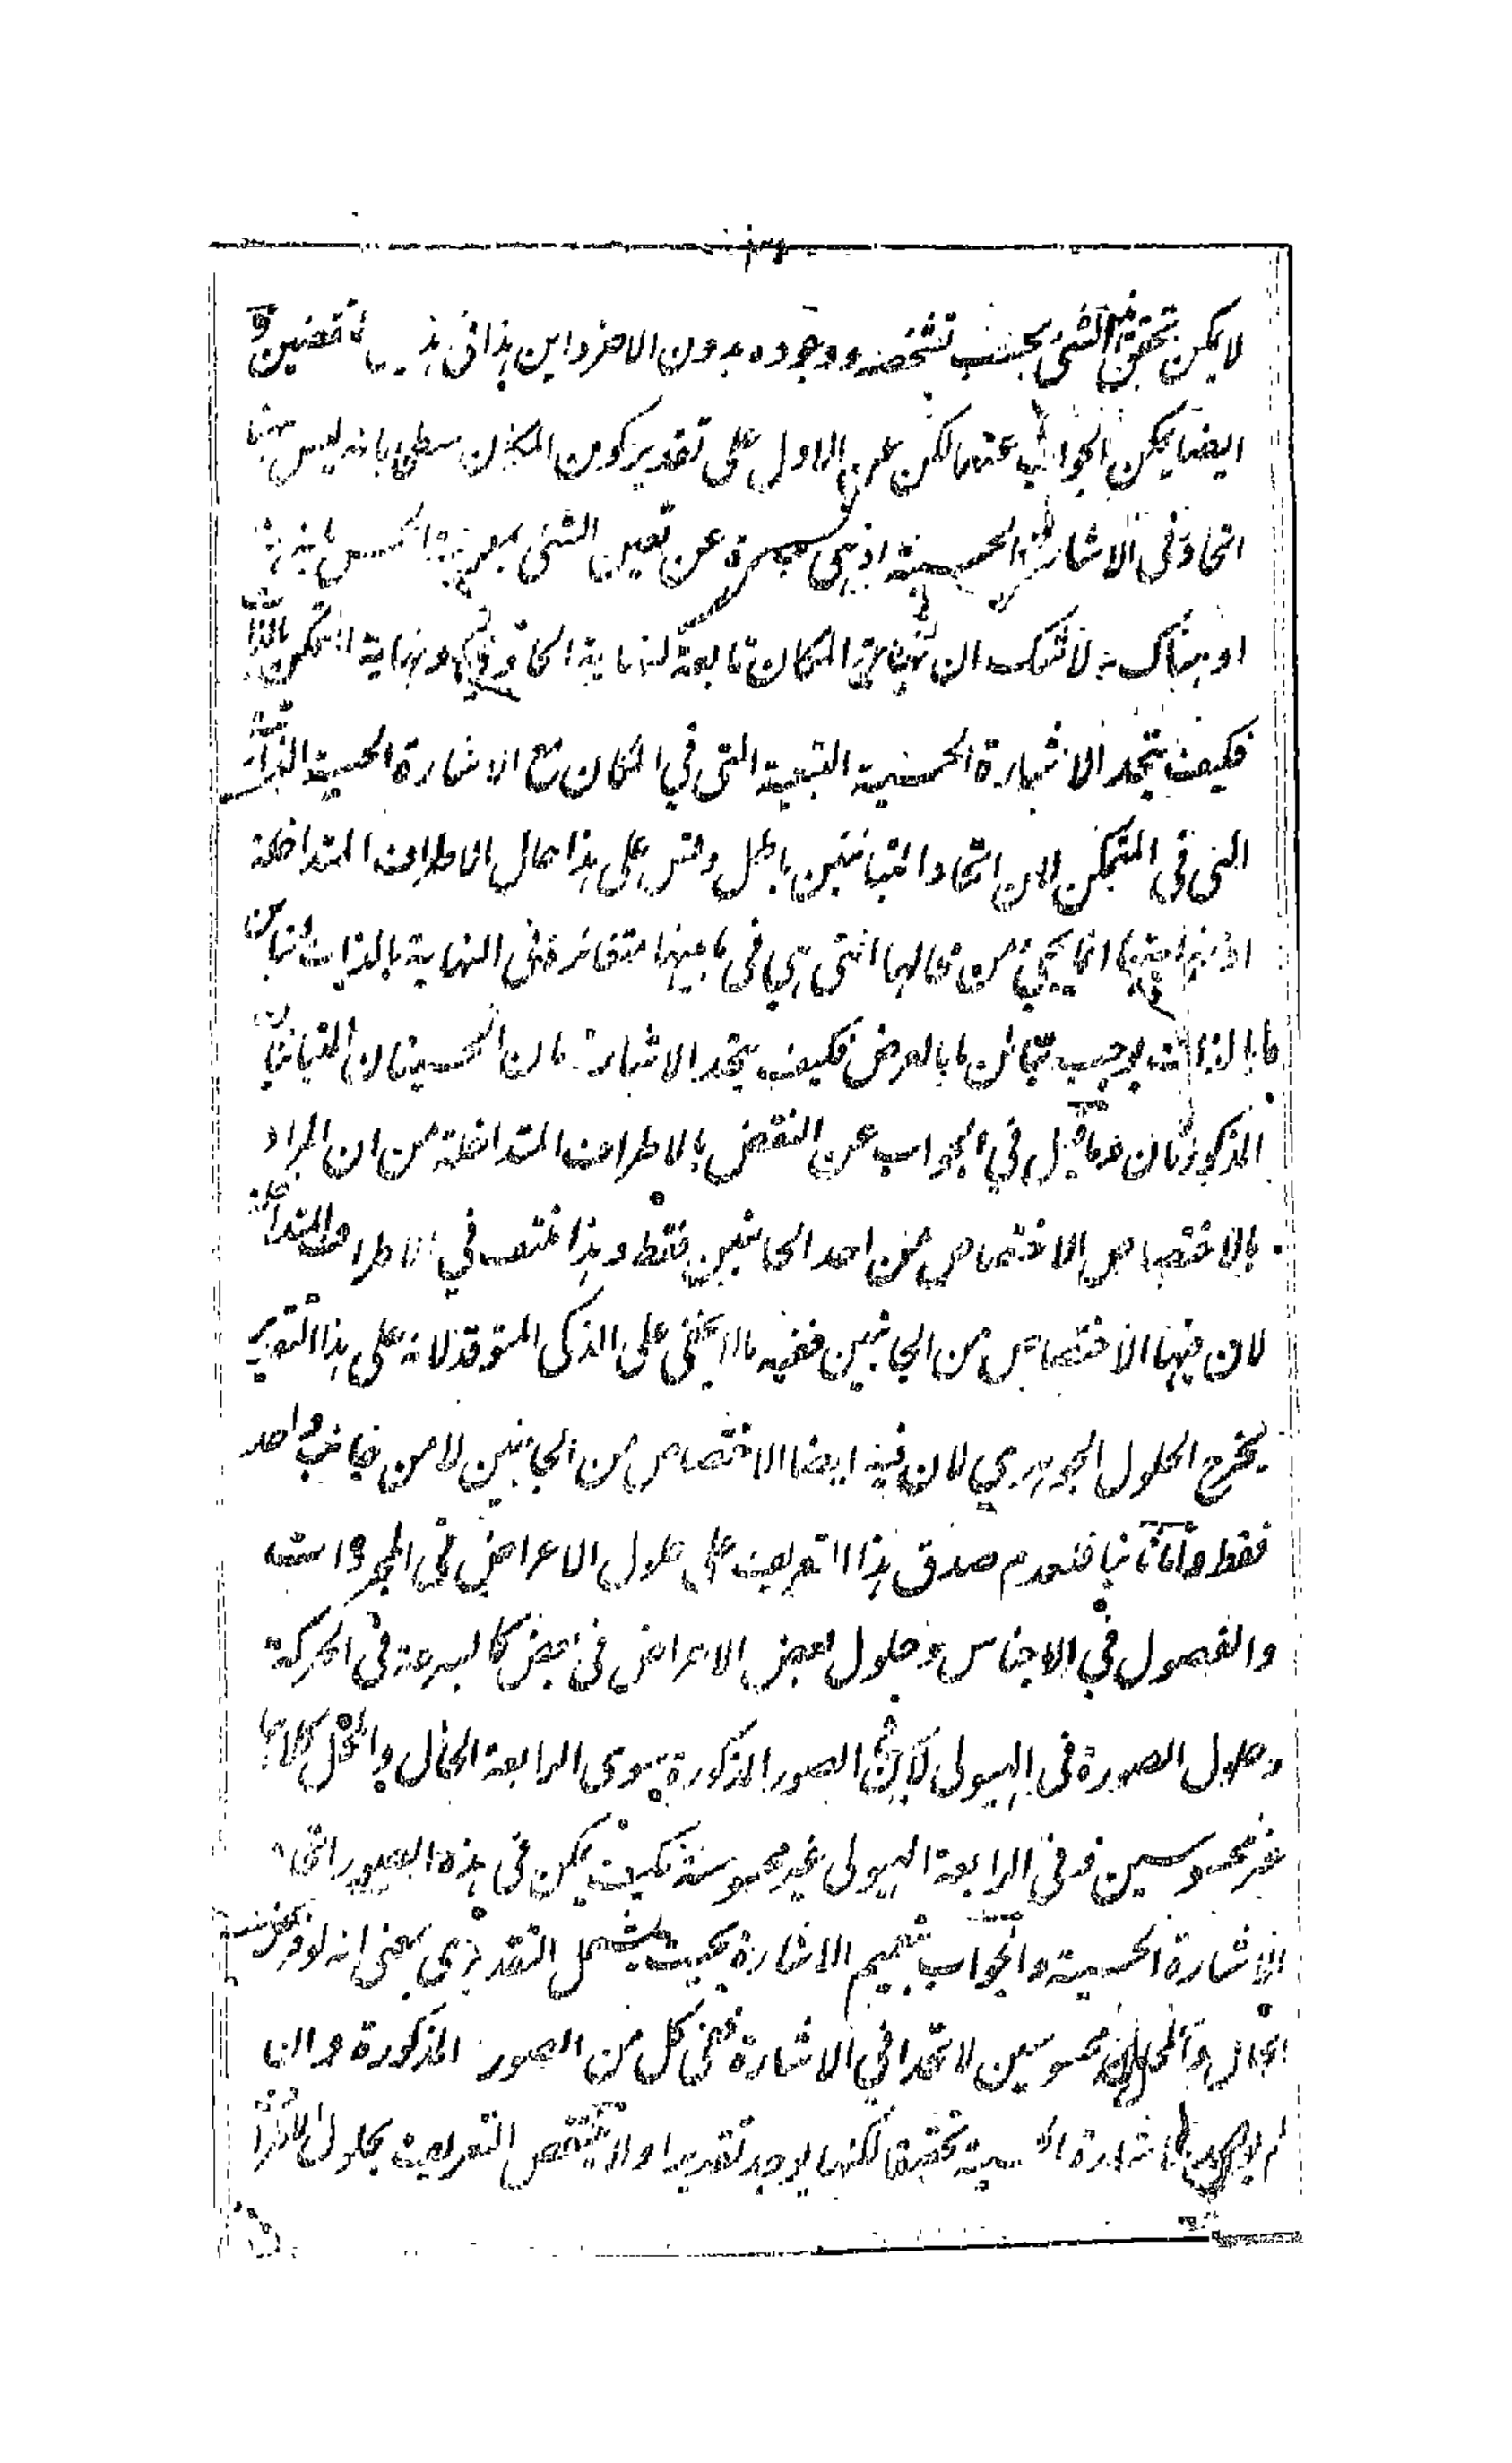 لا يمكن تحقق الشئ بحسب تشخصه ووجوده بدون الاخر واين هذا فى هذين الناقضين و
ايضا يمكن الجواب عنهما لكن عن الاول على تقدير كون المكان سطحا بانه ليس ههنا
اتحاد فى الاشارة الحسية اذ هى عبارة عن تعيين الشئ بمعونة الحس بانه هنا
او هناك ولا شك ان نهاية المكان تابعة لنهاية الحاوى ونهاية المتمكن
فكيف يتحد الاشارة الحسية التبعية التى في المكان مع الاشارة الحسية الذاتية
التى فى المتمكن لان اتحاد المتباينين باطل وقس على هذا حال الاطراف المتداخلة
اذ انما يجيئ من محالها التى هي فى ما بينها متغائرة فى النهاية بالذات وتباين
ما بالذات يوجب تباين ما بالعرض فكيف يتحد الاشارتان الحسيتان المتباينتان
المذكورتان وما قيل في الجواب عن النقض بالاطراف المتداخلة من ان المراد
بالاختصاص الاختصاص من احد الجانبين فقط وهذا منتف في الاطراف المتداخلة
لان فيها الاختصاص من الجانبين ففيه ما لا يخفى على الذكى المتوقد لانه على هذا التقدير
يخرج الحلول الجوهري لان فيه ايضا الاختصاص من الجانبين لا من جانب واحد
فقط واما ثانيا فلعدم صدق هذا التعريف على حلول الاعراض فى المجردات
والفصول في الاجناس وحلول بعض الاعراض فى بعض كالسرعة فى الحركة
وحلول الصورة فى الهيولى لان فى الصور المذكورة سوى الرابعة الحال والمحل كلاهما
غير محسوسين وفى الرابعة الهيولى غير محسوسة فكيف يمكن فى هذه الصور اتحاد
الاشارة الحسية والجواب بتعميم الاشارة بحيث يشمل التقديري بمعنى انه لو فرض
الحال والمحل محسوسين لاتحدا في الاشارة ففى كل من الصور المذكورة وان
لم يوجد الاشارة الحسية تحقيقا لكنها يوجد تقديرا ولا ينتقض التعريف بحلول